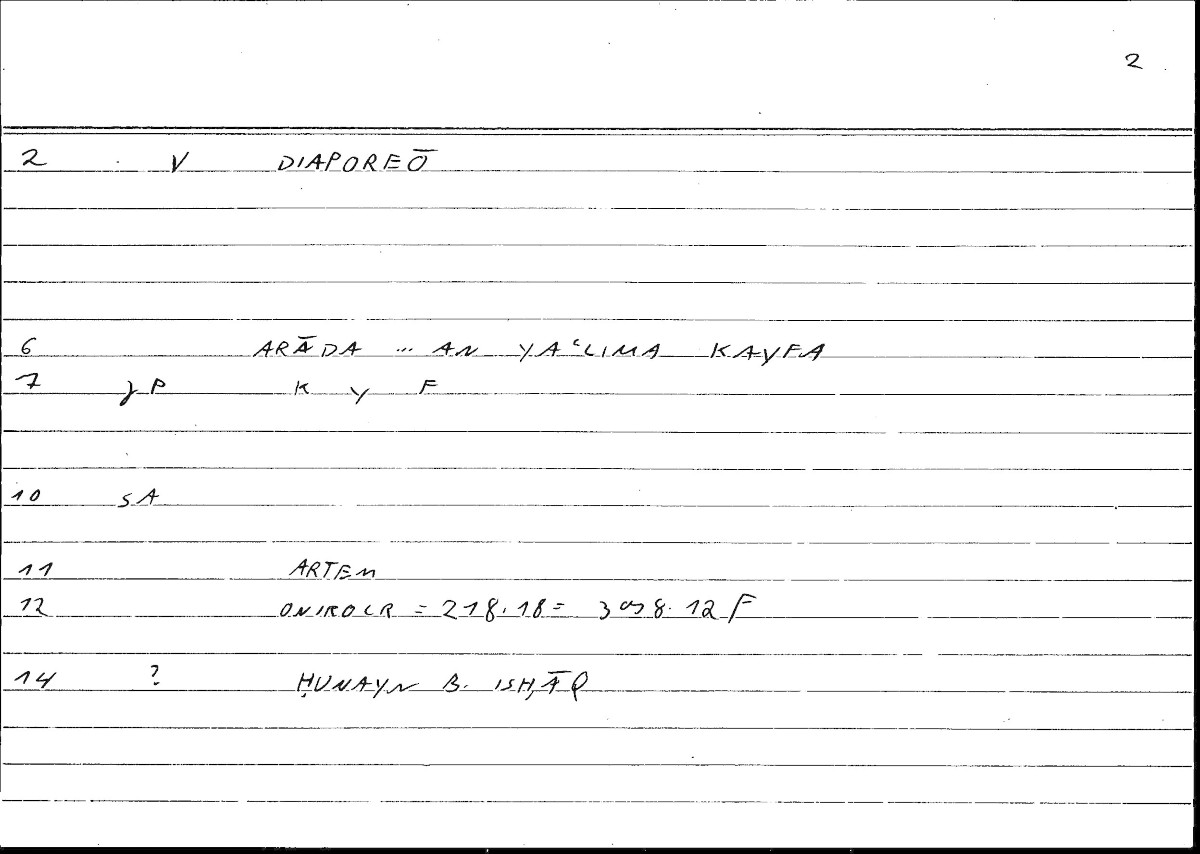 2
2 V DIAPOREŌ
6 ARĀDA ... AN YAʿLIMA KAYFA
7 P K Y F
10 SA
11 ARTEM
12 ONIROCR = 218.18 = 8.12 F
14 ? ḤUNAYN B. ISḤĀQ